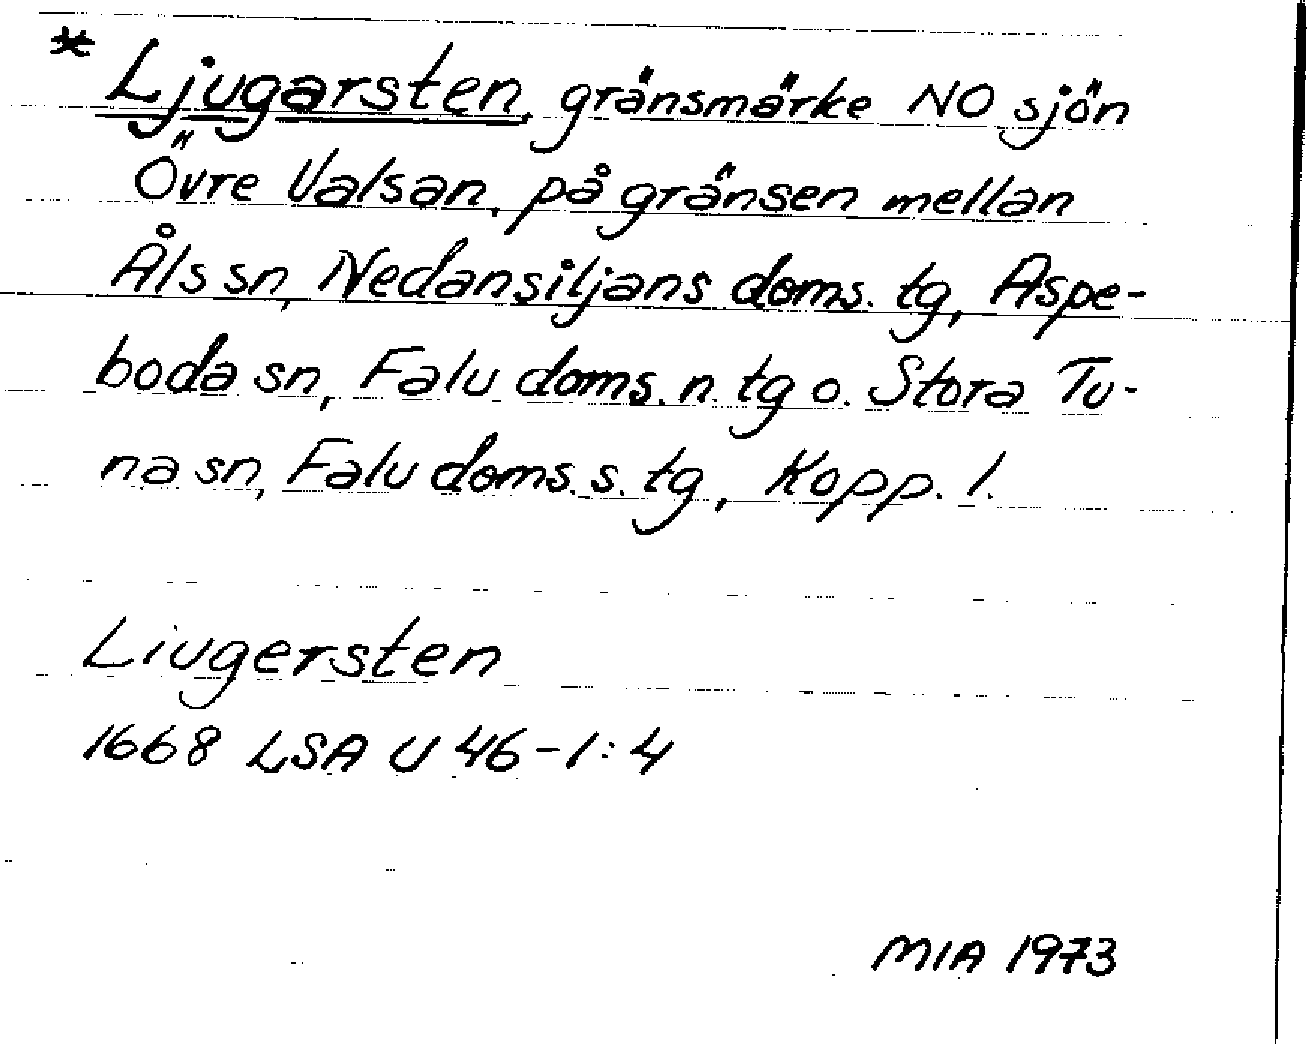 * Ljugarsten, gränsmärke NO sjön
Övre Valsan, på gränsen mellan
Åls sn, Nedansiljans doms. tg, Aspe-
boda sn, Falu doms. n. tg o. Stora Tu-
na sn, Falu doms. s. tg, Kopp. l.
Liugersten
1668 LSA U 46-1:4
MIA 1973